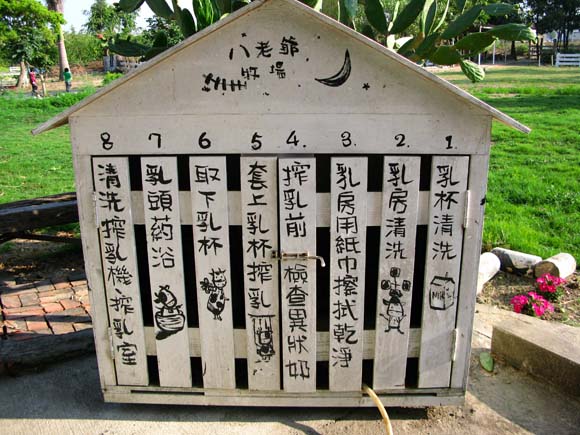 八老爺
牧場
1. 乳杯清洗
2. 乳房清洗
3. 乳房用紙巾擦拭乾淨
4. 搾乳前檢查異狀奶
5 套上乳杯搾乳
6 取下乳杯
7 乳頭葯浴
8 清洗搾乳機.搾乳室
MILK